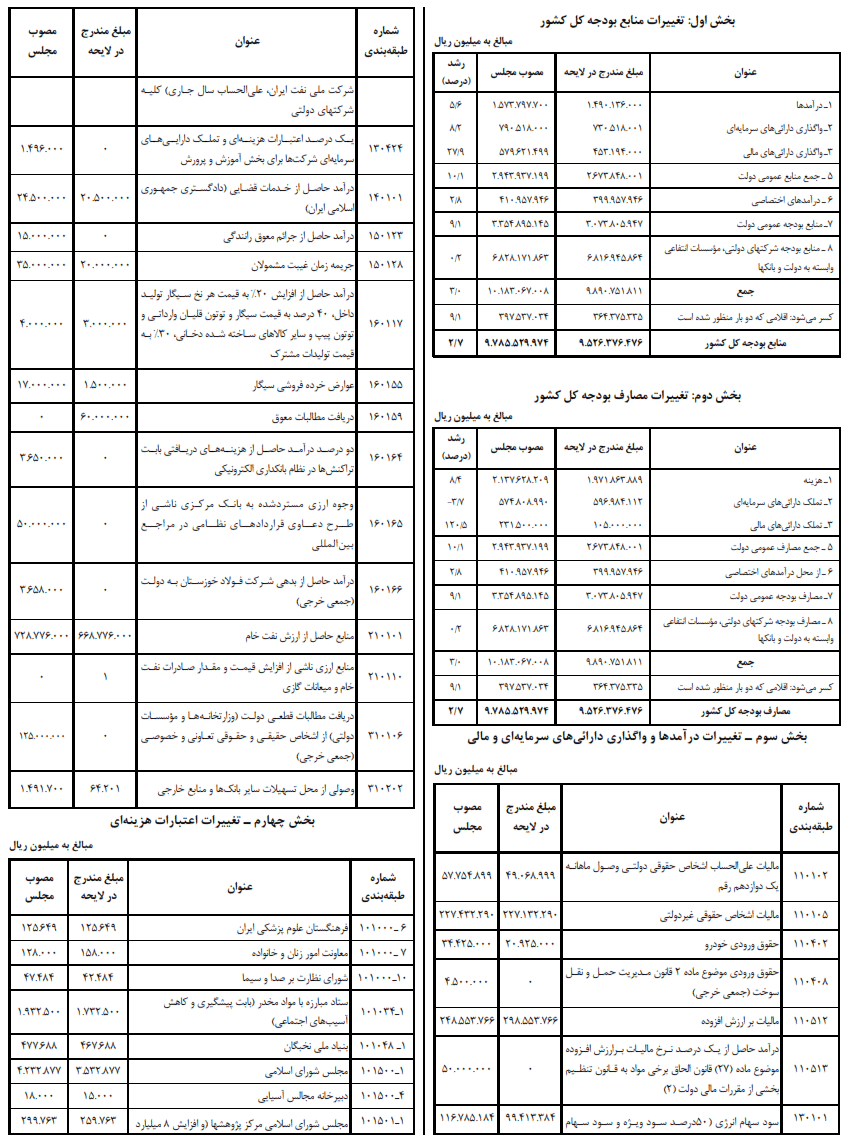 بخش اول: تغییرات منابع بودجه کل کشور
مبالغ به میلیون ریال
عنوان مبلغ مندرج در لایحه مصوب مجلس رشد (درصد)
۱ـ درآمدها ۱.۴۹۰.۱۳۶.۰۰۰ ۱.۵۷۳.۷۹۷.۷۰۰ ۵/۶
۲ـ واگذاری دارائی‌های سرمایه‌ای ۷۳۰.۵۱۸.۰۰۱ ۷۹۰.۵۱۸.۰۰۰ ۸/۲
۳ـ واگذاری دارائی‌های مالی ۴۵۳.۱۹۴.۰۰۰ ۵۷۹.۶۲۱.۴۹۹ ۲۷/۹
۵ ـ جمع منابع عمومی دولت ۲.۶۷۳.۸۴۸.۰۰۱ ۲.۹۴۳.۹۳۷.۱۹۹ ۱۰/۱
۶ ـ درآمدهای اختصاصی ۳۹۹.۹۵۷.۹۴۶ ۴۱۰.۹۵۷.۹۴۶ ۲/۸
۷ـ منابع بودجه عمومی دولت ۳.۰۷۳.۸۰۵.۹۴۷ ۳.۳۵۴.۸۹۵.۱۴۵ ۹/۱
۸ ـ منابع بودجه شرکتهای دولتی، مؤسسات انتفاعی
وابسته به دولت و بانکها ۶.۸۱۶.۹۴۵.۸۶۴ ۶.۸۲۸.۱۷۱.۸۶۳ ۰/۲
جمع ۹.۸۹۰.۷۵۱.۸۱۱ ۱۰.۱۸۳.۰۶۷.۰۰۸ ۳/۰
کسر می‌شود: اقلامی که دو بار منظور شده است ۳۶۴.۳۷۵.۳۳۵ ۳۹۷.۵۳۷.۰۳۴ ۹/۱
منابع بودجه کل کشور ۹.۵۲۶.۳۷۶.۴۷۶ ۹.۷۸۵.۵۲۹.۹۷۴ ۲/۷
بخش دوم: تغییرات مصارف بودجه کل کشور
مبالغ به میلیون ریال
عنوان مبلغ مندرج در لایحه مصوب مجلس رشد (درصد)
۱ـ هزینه ۱.۹۷۱.۸۶۳.۸۸۹ ۲.۱۳۷.۶۲۸.۲۰۹ ۸/۴
۲ـ تملک دارائی‌های سرمایه‌ای ۵۹۶.۹۸۴.۱۱۲ ۵۷۴.۸۰۸.۹۹۰ ۳/۷-
۳ـ تملک دارائی‌های مالی ۱۰۵.۰۰۰.۰۰۰ ۲۳۱.۵۰۰.۰۰۰ ۱۲۰/۵
۵ ـ جمع مصارف عمومی دولت ۲.۶۷۳.۸۴۸.۰۰۱ ۲.۹۴۳.۹۳۷.۱۹۹ ۱۰/۱
۶ ـ از محل درآمدهای اختصاصی ۳۹۹.۹۵۷.۹۴۶ ۴۱۰.۹۵۷.۹۴۶ ۲/۸
۷ـ مصارف بودجه عمومی دولت ۳.۰۷۳.۸۰۵.۹۴۷ ۳.۳۵۴.۸۹۵.۱۴۵ ۹/۱
۸ ـ مصارف بودجه شرکتهای دولتی، مؤسسات انتفاعی
وابسته به دولت و بانکها ۶.۸۱۶.۹۴۵.۸۶۴ ۶.۸۲۸.۱۷۱.۸۶۳ ۰/۲
جمع ۹.۸۹۰.۷۵۱.۸۱۱ ۱۰.۱۸۳.۰۶۷.۰۰۸ ۳/۰
کسر می‌شود: اقلامی که دو بار منظور شده است ۳۶۴.۳۷۵.۳۳۵ ۳۹۷.۵۳۷.۰۳۴ ۹/۱
مصارف بودجه کل کشور ۹.۵۲۶.۳۷۶.۴۷۶ ۹.۷۸۵.۵۲۹.۹۷۴ ۲/۷
بخش سوم ـ تغییرات درآمدها و واگذاری دارائی‌های سرمایه‌ای و مالی
مبالغ به میلیون ریال
شماره طبقه‌بندی عنوان مبلغ مندرج در لایحه مصوب مجلس
۱۱۰۱۰۲ مالیات علی‌الحساب اشخاص حقوقی دولتی وصول ماهانه
یک دوازدهم رقم ۴۹.۰۶۸.۹۹۹ ۵۷.۷۵۴.۸۹۹
۱۱۰۱۰۵ مالیات اشخاص حقوقی غیردولتی ۲۲۷.۱۳۲.۲۹۰ ۲۲۷.۴۳۲.۲۹۰
۱۱۰۴۰۲ حقوق ورودی خودرو ۲۰.۹۲۵.۰۰۰ ۳۴.۴۲۵.۰۰۰
۱۱۰۴۰۸ حقوق ورودی موضوع ماده ۲ قانون مدیریت حمل و نقل
سوخت (جمعی خرجی) ۰ ۴.۵۰۰.۰۰۰
۱۱۰۵۱۲ مالیات بر ارزش افزوده ۲۹۸.۵۵۳.۷۶۶ ۲۴۸.۵۵۳.۷۶۶
۱۱۰۵۱۳ درآمد حاصل از یک درصد نرخ مالیات برارزش افزوده
موضوع ماده (۲۷) قانون الحاق برخی مواد به قانون تنظیم
بخشی از مقررات مالی دولت (۲) ۰ ۵۰.۰۰۰.۰۰۰
۱۳۰۱۰۱ سود سهام انرژی (۵۰درصد سود ویژه و سود سهام ۹۹.۴۱۳.۳۸۴ ۱۱۶.۷۸۵.۱۸۴
شماره طبقه‌بندی عنوان مبلغ مندرج در لایحه مصوب مجلس
شرکت ملی نفت ایران، علی‌الحساب سال جاری) کلیه
شرکتهای دولتی
۱۳۰۴۲۴ یک درصد اعتبارات هزینه‌ای و تملک دارایی‌های
سرمایه‌ای شرکت‌ها برای بخش آموزش و پرورش ۰ ۱.۴۹۶.۰۰۰
۱۴۰۱۰۱ درآمد حاصل از خدمات قضایی (دادگستری جمهوری
اسلامی ایران) ۲۰.۵۰۰.۰۰۰ ۲۴.۵۰۰.۰۰۰
۱۵۰۱۲۳ درآمد حاصل از جرائم معوق رانندگی ۰ ۱۵.۰۰۰.۰۰۰
۱۵۰۱۲۸ جریمه زمان غیبت مشمولان ۲۰.۰۰۰.۰۰۰ ۳۵.۰۰۰.۰۰۰
۱۶۰۱۱۷ درآمد حاصل از افزایش ۲۰٪ به قیمت هر نخ سیگار تولید
داخل، ۴۰ درصد به قیمت سیگار و توتون قلیان وارداتی و
توتون پیپ و سایر کالاهای ساخته شده دخانی، ۳۰٪ به
قیمت تولیدات مشترک ۳.۰۰۰.۰۰۰ ۴.۰۰۰.۰۰۰
۱۶۰۱۵۵ عوارض خرده فروشی سیگار ۱.۵۰۰.۰۰۰ ۱۷.۰۰۰.۰۰۰
۱۶۰۱۵۹ دریافت مطالبات معوق ۶۰.۰۰۰.۰۰۰ ۰
۱۶۰۱۶۴ دو درصد درآمد حاصل از هزینه‌های دریافتی بابت
تراکنش‌ها در نظام بانکداری الکترونیکی ۰ ۳.۶۵۰.۰۰۰
۱۶۰۱۶۵ وجوه ارزی مستردشده به بانک مرکزی ناشی از
طرح دعاوی قراردادهای نظامی در مراجع
بین‌المللی ۰ ۵۰.۰۰۰.۰۰۰
۱۶۰۱۶۶ درآمد حاصل از بدهی شرکت فولاد خوزستان به دولت
(جمعی خرجی) ۰ ۳.۶۵۸.۰۰۰
۲۱۰۱۰۱ منابع حاصل از ارزش نفت خام ۶۶۸.۷۷۶.۰۰۰ ۷۲۸.۷۷۶.۰۰۰
۲۱۰۱۱۰ منابع ارزی ناشی از افزایش قیمت و مقدار صادرات نفت
خام و میعانات گازی ۱ ۰
۳۱۰۱۰۶ دریافت مطالبات قطعی دولت (وزارتخانه‌ها و مؤسسات
دولتی) از اشخاص حقیقی و حقوقی تعاونی و خصوصی
(جمعی خرجی) ۰ ۱۲۵.۰۰۰.۰۰۰
۳۱۰۲۰۲ وصولی از محل تسهیلات سایر بانک‌ها و منابع خارجی ۶۴.۲۰۱ ۱.۴۹۱.۷۰۰
بخش چهارم ـ تغییرات اعتبارات هزینه‌ای
مبالغ به میلیون ریال
شماره طبقه‌بندی عنوان مبلغ مندرج در لایحه مصوب مجلس
۶ ـ ۱۰۱۰۰۰ فرهنگستان علوم پزشکی ایران ۱۲۵.۶۴۹ ۱۲۵.۶۴۹
۷ ـ ۱۰۱۰۰۰ معاونت امور زنان و خانواده ۱۵۸.۰۰۰ ۱۲۸.۰۰۰
۱۰ـ۱۰۱۰۰۰ شورای نظارت بر صدا و سیما ۴۲.۴۸۴ ۴۷.۴۸۴
۱ـ۱۰۱۰۳۴ ستاد مبارزه با مواد مخدر (بابت پیشگیری و کاهش
آسیب‌های اجتماعی) ۱.۷۳۲.۵۰۰ ۱.۹۳۲.۵۰۰
۱ـ ۱۰۱۰۴۸ بنیاد ملی نخبگان ۴۶۷.۶۸۸ ۴۷۷.۶۸۸
۱ـ۱۰۱۵۰۰ مجلس شورای اسلامی ۳.۵۳۲.۸۷۷ ۴.۲۳۲.۸۷۷
۴ـ۱۰۱۵۰۰ دبیرخانه مجالس آسیایی ۱۵.۰۰۰ ۱۸.۰۰۰
۱ـ۱۰۱۵۰۱ مجلس شورای اسلامی مرکز پژوهشها (و افزایش ۸ میلیارد ۲۵۹.۷۶۳ ۲۹۹.۷۶۳